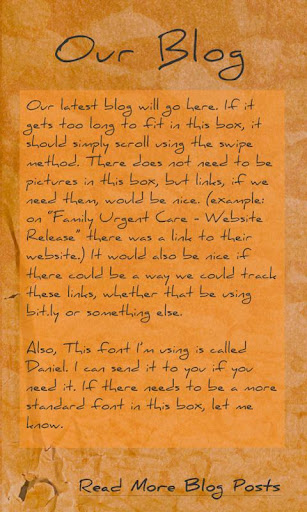 Our Blog
Our latest blog will go here. If it
gets too long to fit in this box, it
should simply scroll using the swipe
method. There does not need to be
pictures in this box, but links, if we
need them, would be nice. (example:
on "Family Urgent Care - Website
Release" there was a link to their
website.) It would also be nice if
there could be a way we could track
these links, whether that be using
bit.ly or something else.
Also, This font I'm using is called
Daniel. I can send it to you if you
need it. If there needs to be a more
standard font in this box, let me
know.
Read More Blog Posts